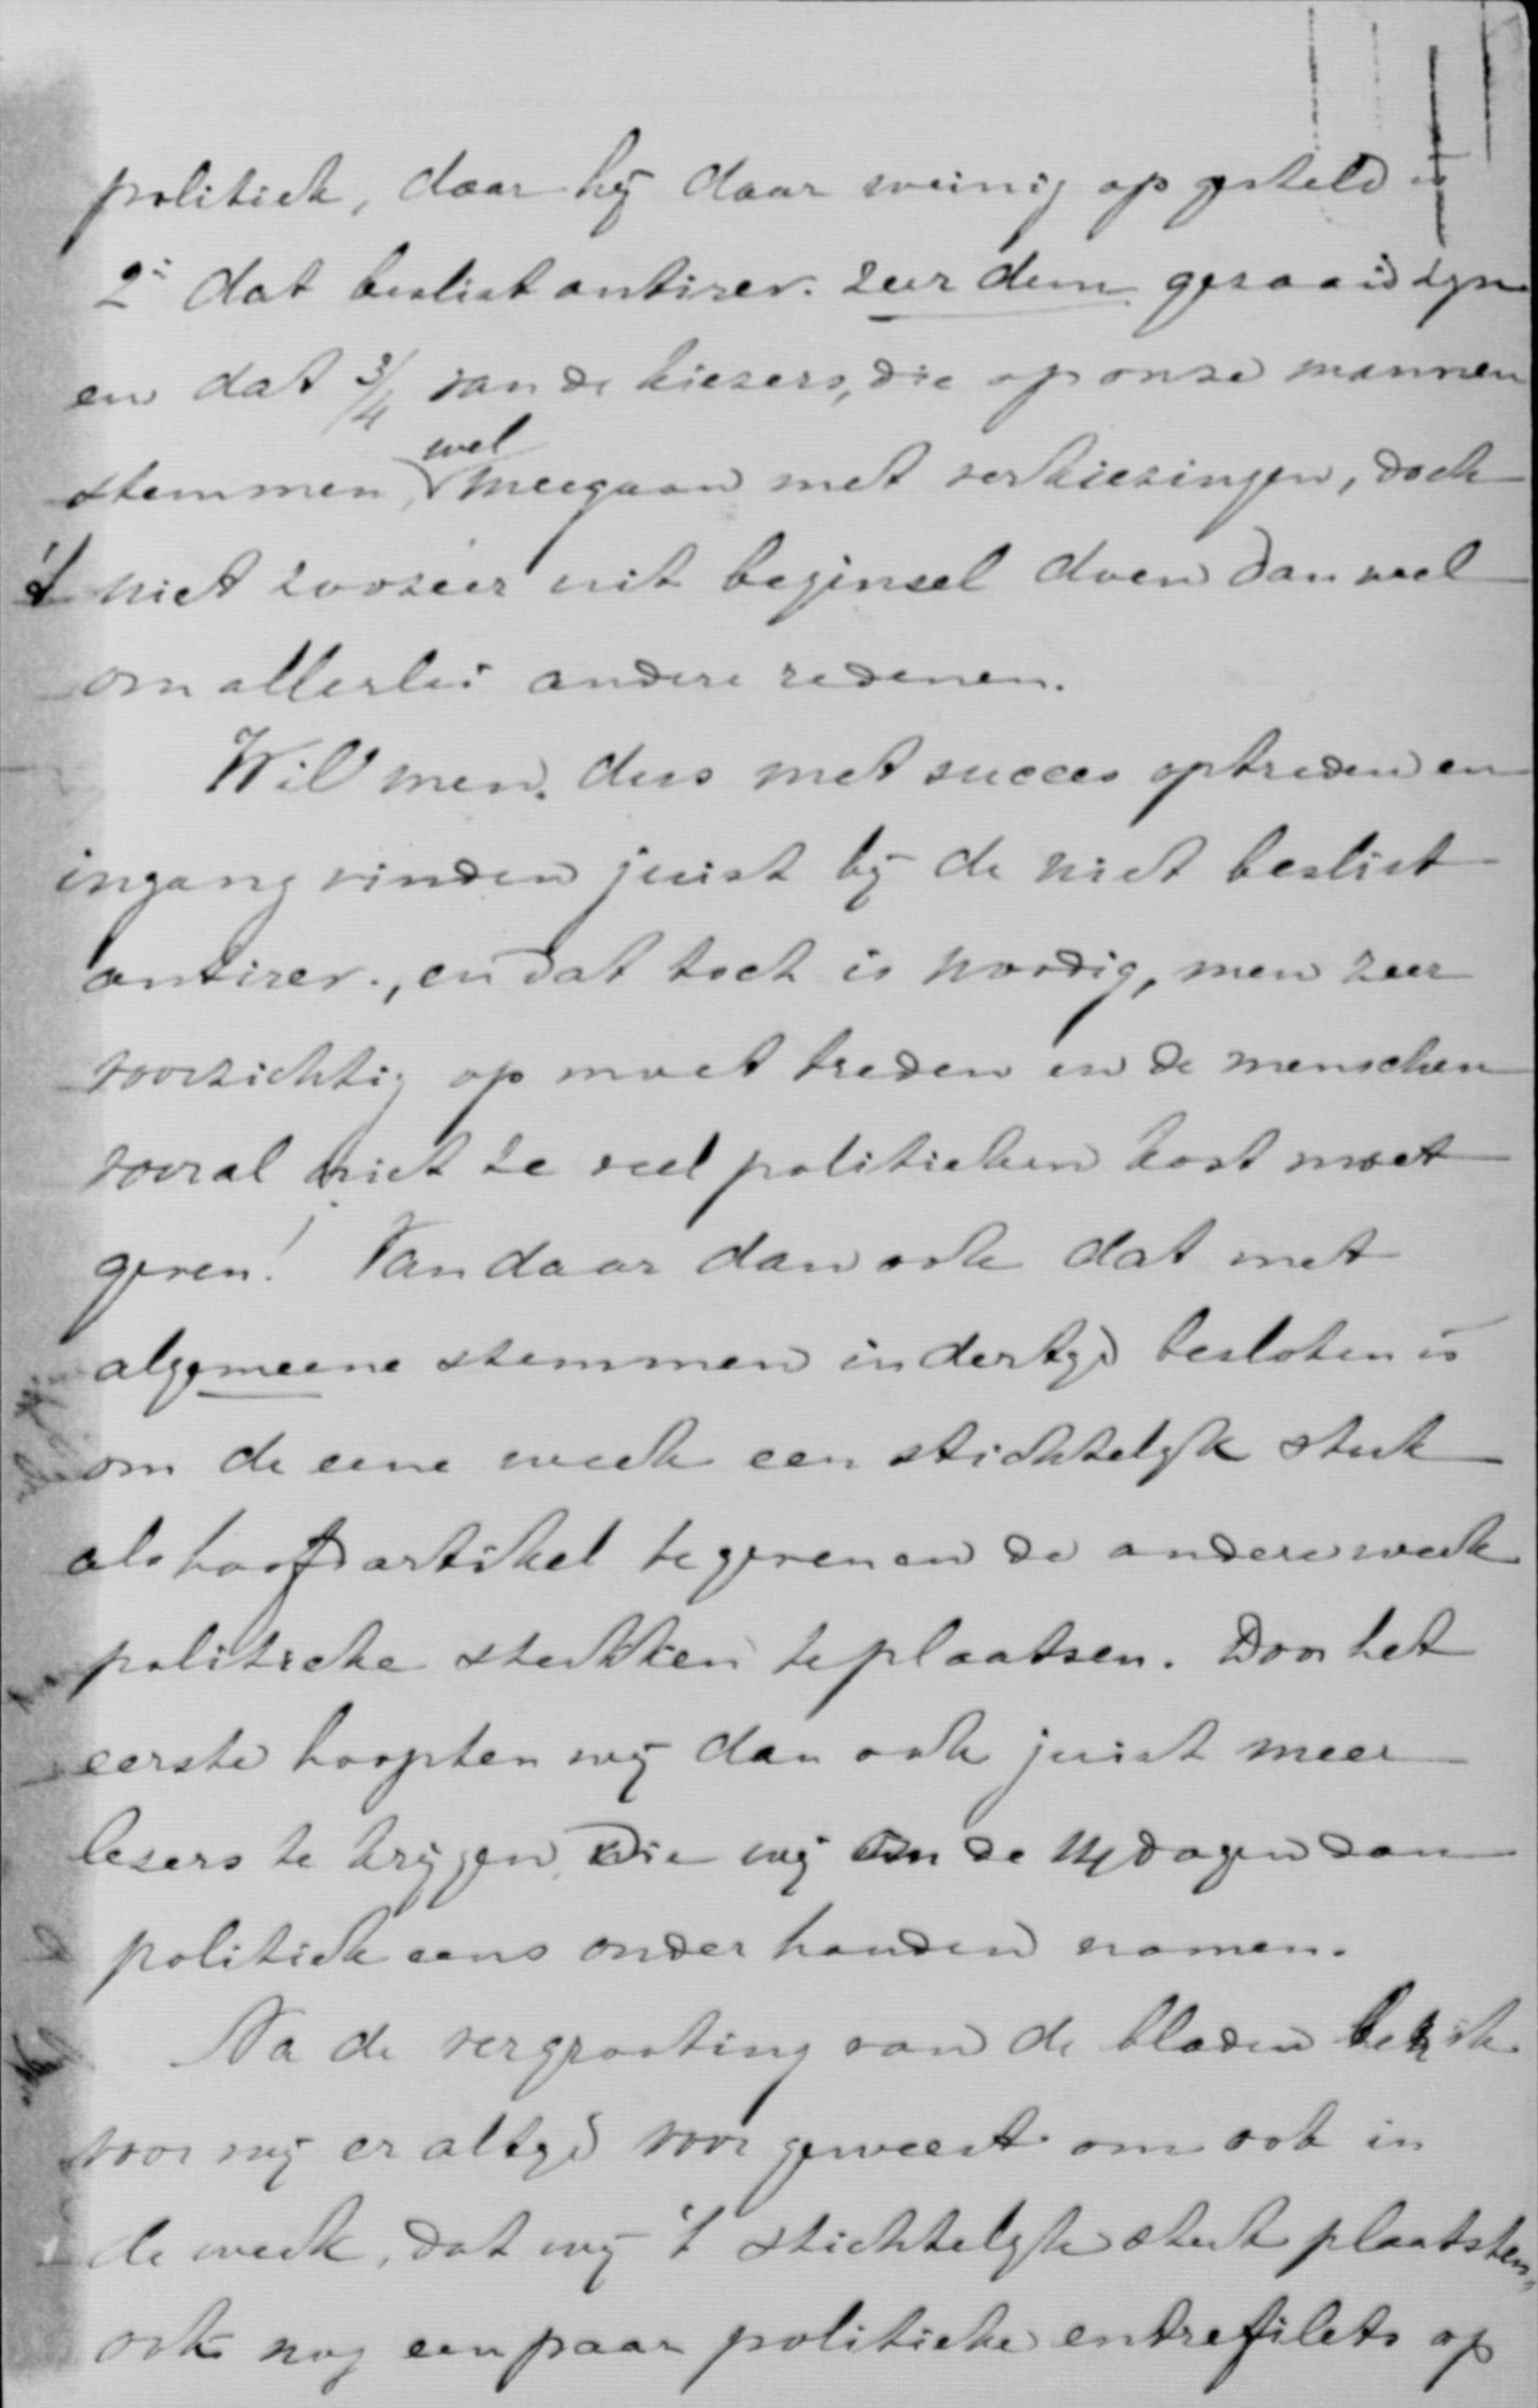 politiek, daar hij daar weinig op gesteld is
2e dat beslist antirev. zeer dun gezaaid zijn
en dat 3/4 van de kiezers, die op onze mannen
stemmen, wel meegaan met verkiezingen, doch
't niet zoozeer uit beginsel doen dan wel
om allerlei andere redenen.
Wil men dus met succes optreden en
ingang vinden juist bij de niet beslist
antirev., en dat toch is noodig, men zeer
voorzichtig op moet treden en de menschen
vooral niet te veel politieken kost moet
geven! Vandaar dan ook dat met
algemeene stemmen indertijd besloten is
om de eene week een stichtelijk stuk
als hoofdartikel te geven en de andere week
politieke stukken te plaatsen. Door het
eerste hoopten wij dan ook juist meer
lezers te krijgen die wij in de dagen dan
politiek eens onder handen namen.
Na de vergrooting van de bladen ben ik
voor mij er altijd voor geweest om ook in
de week, dat wij 't stichtelijk stuk plaatsten,
ook nog een paar politieke entrefilets op